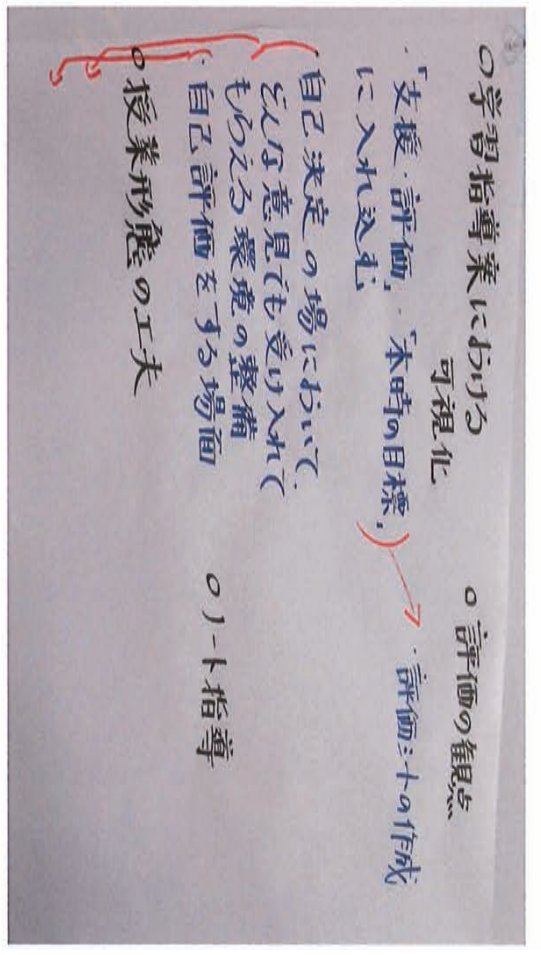 ○学習指導案における
可視化
・「支援・評価」・「本時の目標」
に入れ込む
・自己決定の場において、
どんな意見でも受け入れて
もらえる環境の整備
・自己評価をする場面
○授業形態の工夫
○評価の観点
・評価シートの作成
○ノート指導